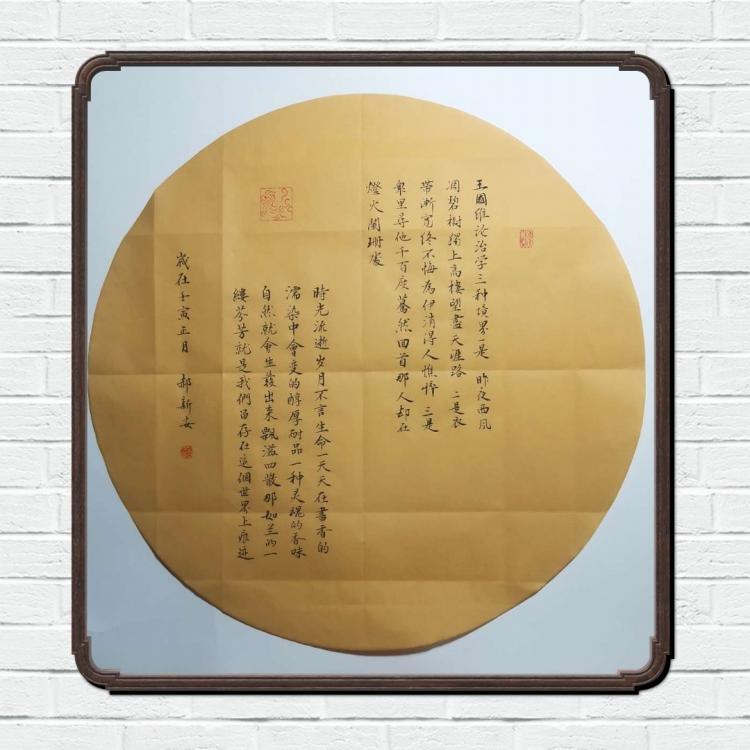 王國維论治学三种境界一是 昨夜西风
凋碧樹獨上高樓望盡天涯路 二是衣
带漸宽终不悔為伊消得人憔悴 三是
衆里尋他千百度驀然回首那人却在
燈火闌珊處
時光流逝岁月不言生命一天天在書香的
濡染中會变的醇厚耐品一种灵魂的香味
自然就會生發出来飘溢四散那如兰的一
縷芬芳就是我們留存在這個世界上痕迹
歲在壬寅正月 郝新安